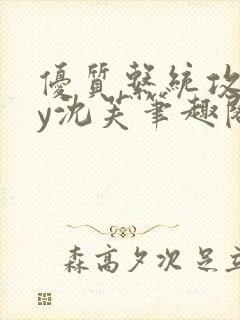 優質繫統攻
y沈芙筆趣閣
森高夕次 足立